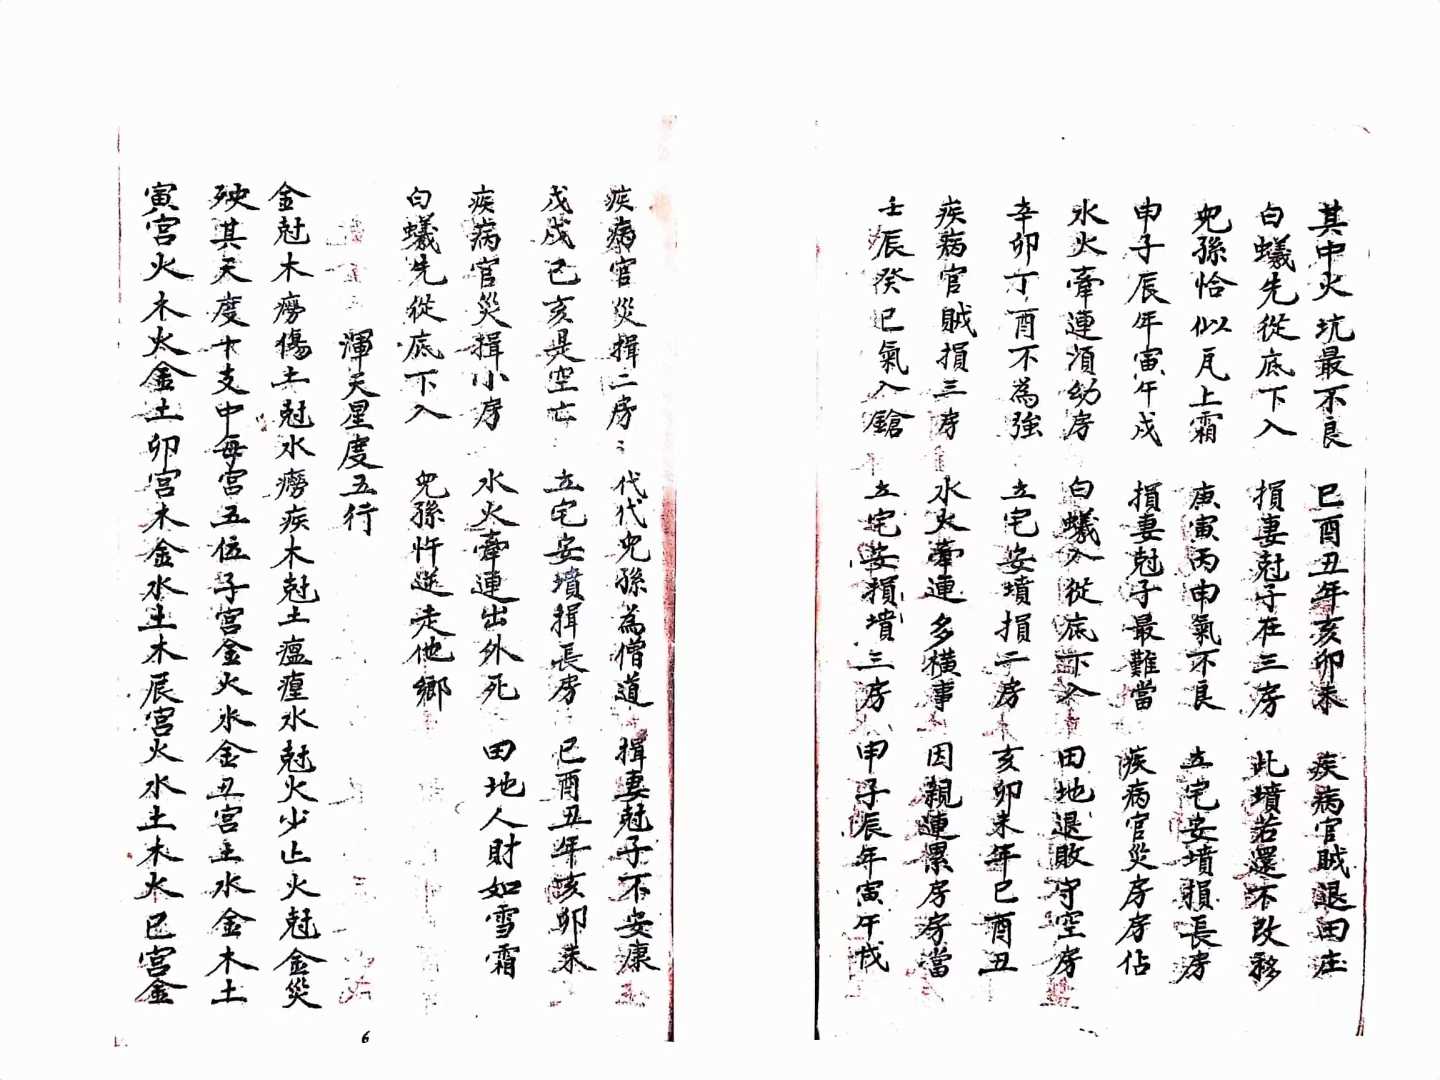 其中火坑最不良　巳酉丑年亥卯未　疾病官賊退田庄
白蟻先從底下入　損妻尅子在三房　此墳若還不改移
兒孫恰似瓦上霜　庚寅丙申氣不良　立宅安墳損長房
申子辰年寅午戌　損妻尅子最難當　疾病官災房房佔
水火牽連須幼房　白蟻入從底下入　田地退敗守空房
辛卯丁酉不為強　立宅安墳損二房　亥卯未年巳酉丑
疾病官賊損三房　水火牽連多橫事　因親連累房房當
壬辰癸巳氣入鎗　立宅安損墳三房　申子辰年寅午戌
疾病官災損二房　代代兒孫為僧道　損妻尅子不安康
戊戌己亥是空亡　立宅安墳損長房　巳酉丑年亥卯未
疾病官災損小房　水火牽連出外死　田地人財如雪霜
白蟻先從底下入　兒孫忤逆走他鄉
渾天星度五行
金尅木癆傷土尅水癆疾木尅土瘟瘽水尅火少亡火尅金災
殃其天度十支中每宮五位子宮金火水金丑宮土水金木土
寅宮火木火金土卯宮木金水土木辰宮火水土木火巳宮金
6